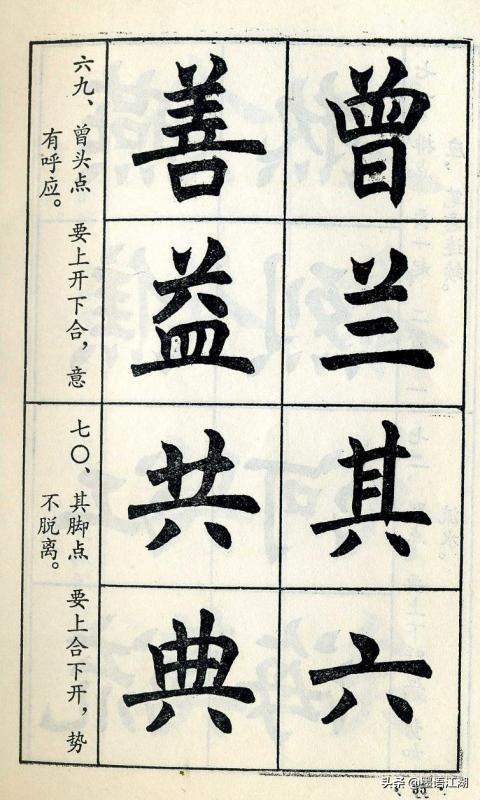 曾兰其六
善益共典
六九、曾头点　要上开下合，意
有呼应。
七〇、其脚点　要上合下开，势
不脱离。
头条 @墨语江湖